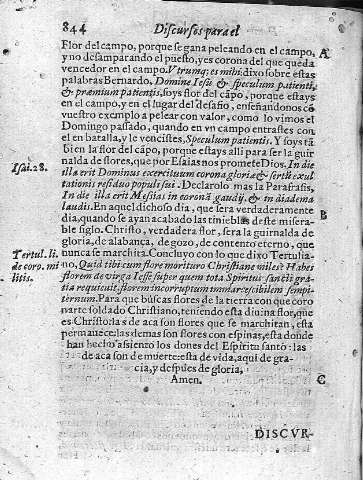 844 Discursos para el
Flor del campo, porque se gana peleando en el campo, A
y no desamparando el puesto, yes corona del que queda
vencedor en el campo. Vtrumq; es mihi: dixo sobre estas
palabras Bernardo, Domine Iesu & speculum patientis,
& præmium patientis, soys flor del cāpo, porque estays
en el campo, y en el lugar del desafio, enseñandonos cō
vuestro exemplo a pelear con valor, como lo vimos el
Domingo passado, quando en vn campo entrastes con
el en batalla, y le vencistes, Speculum patientis. Y soys tā
bien la flor del cāpo, porque estays alli para ser la guir
nalda de flores, que por Esaias nos promete Dios, In die
Isai. 28. illa erit Dominus exercituum corona gloriæ & sertū exul
tationis residuo populi sui. Declarolo mas la Parafrasis,
In die illa erit Messias in coronā gaudij, & in diadema
laudis. En aquel dichoso dia, que sera verdaderamente
dia, quando se ayan acabado las tinieblas deste misera- B
ble siglo. Christo, verdadera flor, sera la guirnalda de
gloria, de alabança, de gozo, de contento eterno, que
Tertul. li. nunca se marchita. Concluyo con lo que dixo Tertulia-
de coro. mi no, Quid tibi cum flore morituro Christiane miles? Habes
litis. florem de virga Iesse super quem tota Spiritus sancti gra-
tia requieuit, florem incorruptum immarcescibilem sempi-
ternum. Para que buscas flores de la tierra con que coro
narte soldado Christiano, teniendo esta diuina flor, que
es Christo: las de aca son flores que se marchitan, esta
permanece: las demas son flores con espinas, esta donde
han hecho assiento los dones del Espiritu santo: las
de aca son de muerte: esta de vida, aqui de gra-
cia, y despues de gloria,
Amen. C
DISCVR-